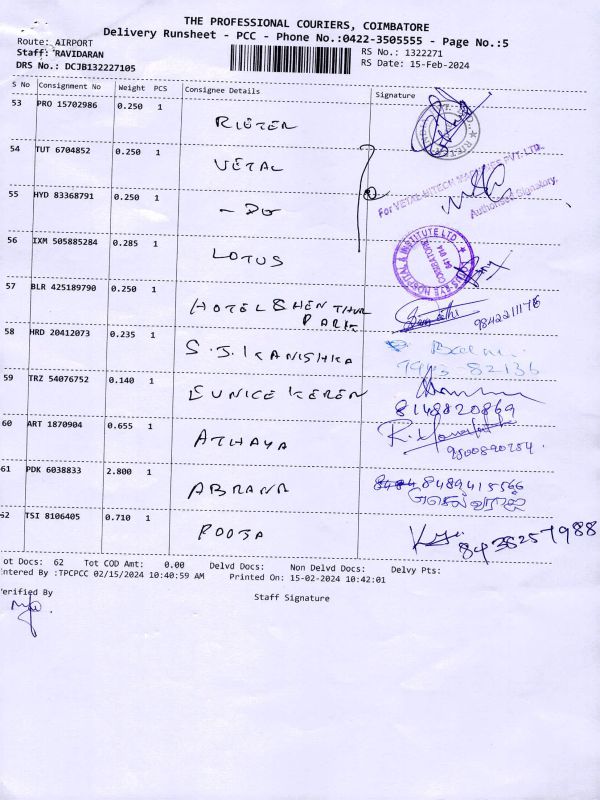 THE PROFESSIONAL COURIERS, COIMBATORE
Delivery Runsheet - PCC - Phone No.:0422-3505555 - Page No.:5
Route: AIRPORT
Staff: RAVIDARAN RS No.: 1322271
DRS No.: DCJB132227105 RS Date: 15-Feb-2024
S No Consignment No Weight PCS Consignee Details Signature
53 PRO 15702986 0.250 1
RIETER
54 TUT 6704852 0.250 1
VETAL
For VETAL HITECH MACHINES PVT. LTD.
Authorised Signatory.
55 HYD 83368791 0.250 1
- DO
56 IXM 505885284 0.285 1
LOTUS
LOTUS EYE HOSPITAL & INSTITUTE LTD.
COIMBATORE
641 014
57 BLR 425189790 0.250 1
HOTEL SHEN THUR
PARK
9842211176
58 HRD 20412073 0.235 1
S.J. KANISHKA
59 TRZ 54076752 0.140 1
EUNICE KEREN
8148820869
60 ART 1870904 0.655 1
ATHAYA
9500890254.
61 PDK 6038833 2.800 1
ABRANA
8489415566
62 TSI 8106405 0.710 1
POOJA
8438257988
ot Docs: 62 Tot COD Amt: 0.00 Delvd Docs: Non Delvd Docs: Delvy Pts:
ntered By :TPCPCC 02/15/2024 10:40:59 AM Printed On: 15-02-2024 10:42:01
erified By
Staff Signature